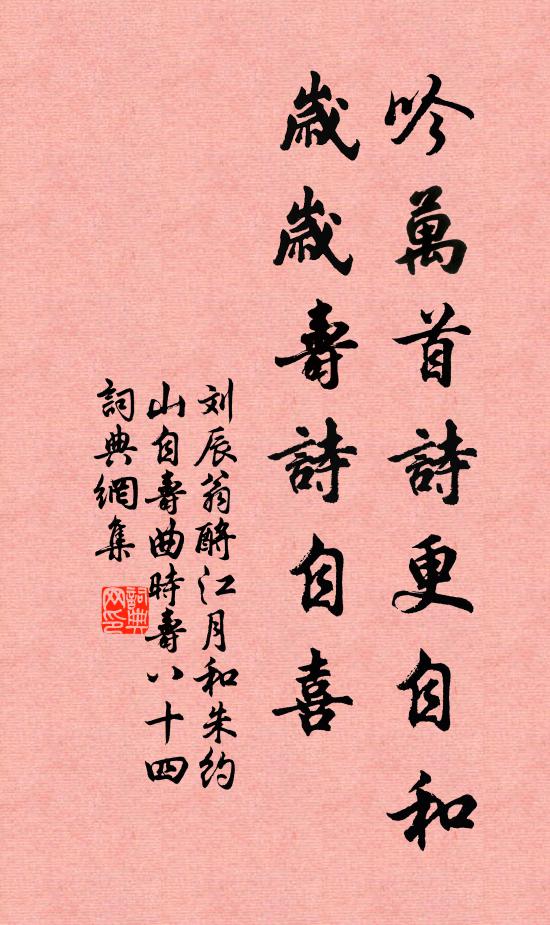 吟萬首詩更自和
歲歲壽詩自喜
刘辰翁酹江月和朱约
山自壽曲時壽八十四
詞典網集
詞典网印